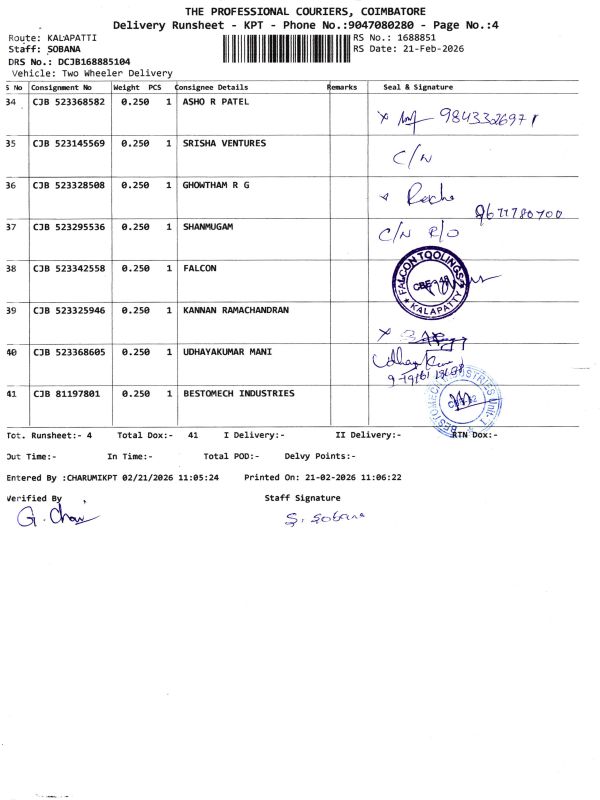 THE PROFESSIONAL COURIERS, COIMBATORE
Delivery Runsheet - KPT - Phone No.:9047080280 - Page No.:4
Route: KALAPATTI RS No.: 1688851
Staff: SOBANA RS Date: 21-Feb-2026
DRS No.: DCJB168885104
Vehicle: Two Wheeler Delivery
S No Consignment No Weight PCS Consignee Details Remarks Seal & Signature
34 CJB 523368582 0.250 1 ASHO R PATEL
x 9843326971
35 CJB 523145569 0.250 1 SRISHA VENTURES
C/N
36 CJB 523328508 0.250 1 GHOWTHAM R G
9677780700
37 CJB 523295536 0.250 1 SHANMUGAM
C/N R/O
38 CJB 523342558 0.250 1 FALCON
FALCON TOOLINGS
KALAPATTY
39 CJB 523325946 0.250 1 KANNAN RAMACHANDRAN
x
40 CJB 523368605 0.250 1 UDHAYAKUMAR MANI
41 CJB 81197801 0.250 1 BESTOMECH INDUSTRIES
BESTOMECH INDUSTRIES Unit-1
Tot. Runsheet:- 4 Total Dox:- 41 I Delivery:- II Delivery:- RTN Dox:-
Out Time:- In Time:- Total POD:- Delvy Points:-
Entered By :CHARUMIKPT 02/21/2026 11:05:24 Printed On: 21-02-2026 11:06:22
Verified By Staff Signature
S. Sobana